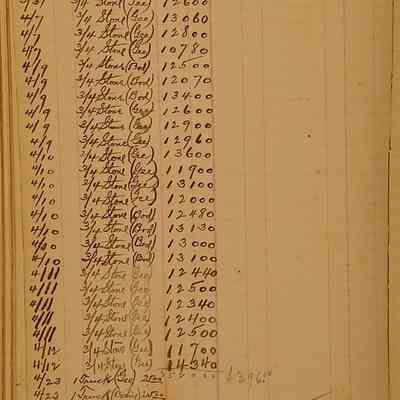 3/4 Stone (Gee) 12600
4/7 3/4 Stone (Gee) 13060
4/7 3/4 Stone (Gee) 12800
4/7 3/4 Stone (Geo) 10780
4/9 3/4 Stone (Bod) 12500
4/9 3/4 Stone (Bod) 12070
4/9 3/4 Stone (Bod) 13400
4/9 3/4 Stone (Geo) 12600
4/9 3/4 Stone (Geo) 12900
4/9 3/4 Stone (Gee) 12960
4/10 3/4 Stone (Gee) 13600
4/10 3/4 Stone (Gee) 11900
4/10 3/4 Stone (Gee) 13100
4/10 3/4 Stone (Gee) 12000
4/10 3/4 Stone (Bod) 12480
4/10 3/4 Stone (Bod) 13130
4/10 3/4 Stone (Bod) 13000
4/10 3/4 Stone (Bod) 13100
4/11 3/4 Stone (Geo) 12440
4/11 3/4 Stone (Geo) 12500
4/11 3/4 Stone (Geo) 12340
4/11 3/4 Stone (Geo) 12400
4/11 3/4 Stone (Geo) 12500
4/12 3/4 Stone (Geo) 11700
4/12 3/4 Stone (Geo) 14340
4/23 1 Truck (Geo) 25.00
4/23 1 Truck